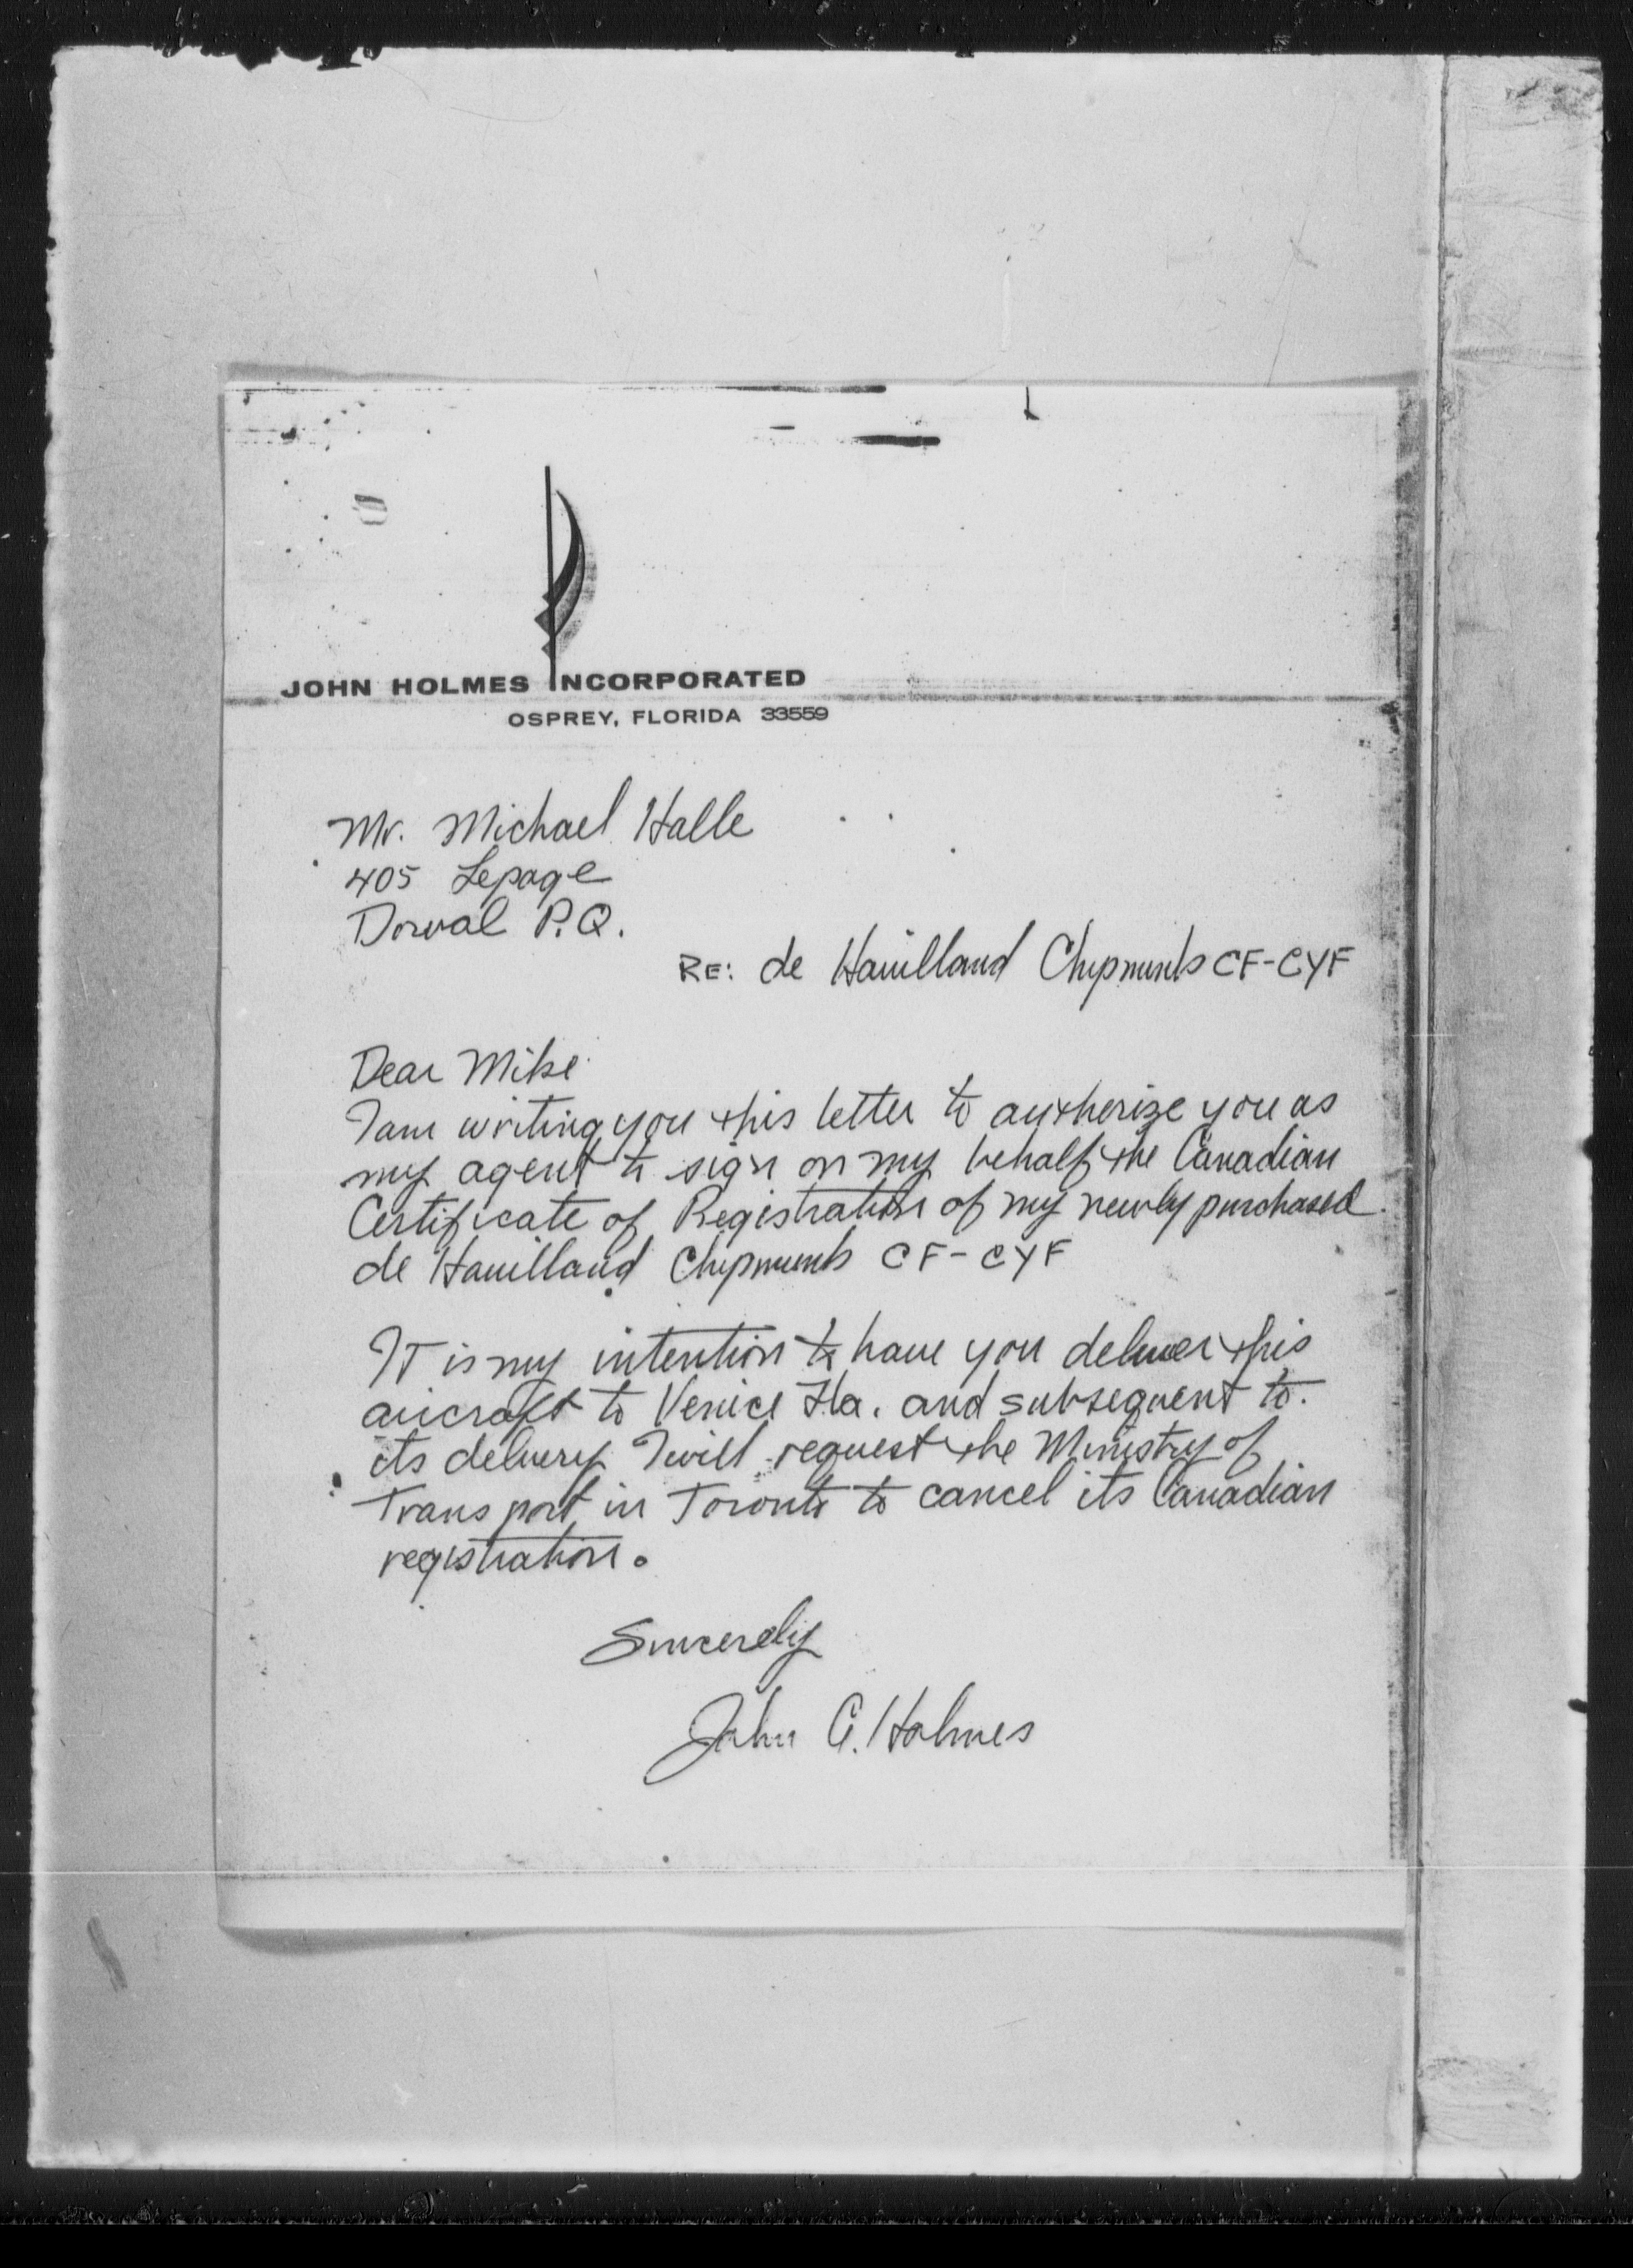 JOHN HOLMES INCORPORATED
OSPREY, FLORIDA 33559
Mr. Michael Halle
405 Lepage
Dorval P.Q.
RE: de Havilland Chipmunk CF-CYF
Dear Mike
I am writing you this letter to authorize you as
my agent to sign on my behalf the Canadian
Certificate of Registration of my newly purchased
de Havilland Chipmunk CF-CYF
It is my intention to have you deliver this
aircraft to Venice Fla. and subsequent to
its delivery I will request the Ministry of
Transport in Toronto to cancel its Canadian
registration.
Sincerely
John G. Holmes